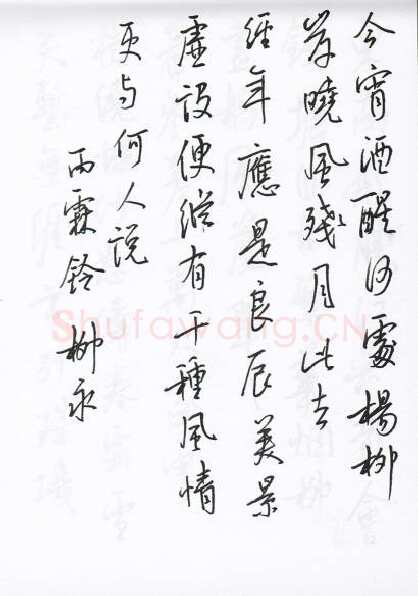 今宵酒醒何處楊柳
岸曉風殘月此去
經年應是良辰美景
虛設便縱有千種風情
更与何人說
雨霖鈴 柳永
Shufawang.CN